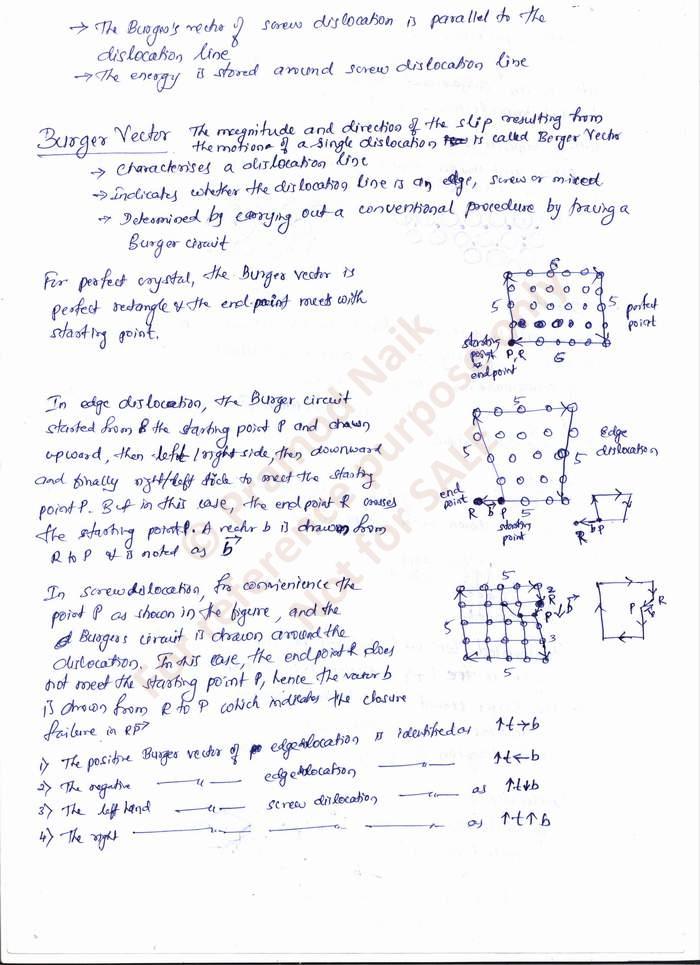 → The Burger's vector of screw dislocation is parallel to the
dislocation line
→ The energy is stored around screw dislocation line
Burger Vector The magnitude and direction of the slip resulting from
the motion of a single dislocation is called Berger Vector
→ Characterises a dislocation line
→ Indicates whether the dislocation line is an edge, screw or mixed
→ Determined by carrying out a conventional procedure by tracing a
Burger circuit
For perfect crystal, the Burger vector is
perfect rectangle & the end point meets with
starting point.
6
5
5
perfect
point
starting
point
&
endpoint
P, R
6
In edge dislocation, the Burger circuit
started from the starting point P and drawn
upward, then left/right side, then downward
and finally right/left side to meet the starting
point P. But in this case, the end point R crosses
the starting point P. A vector b is drawn from
R to P & is noted as b→
5
5
5
Edge
dislocation
end
point
R b P
5
starting
point
R b P
In screw dislocation, for convenience the
point P as shown in the figure, and the
Burgers circuit is drawn around the
dislocation. In this case, the end point R does
not meet the starting point P, hence the vector b
is drawn from R to P which indicates the closure
failure in RP→
5
2
R
P
b→
5
3
5
P
R
b
1) The positive Burger vector of edge dislocation is identified as ↑t→b
2) The negative —〃— edge dislocation —〃— ↑t←b
3) The left hand —〃— screw dislocation —〃— as ↑t↓b
4) The right —〃— —〃— —〃— as ↑t↑b
© Pramod Naik
for reference purpose only
Not for SALE